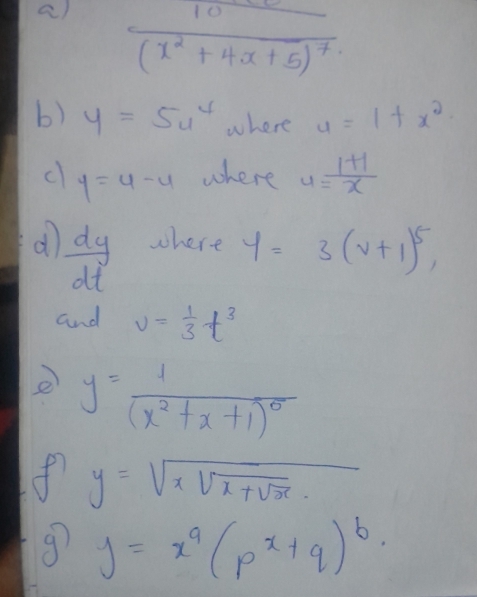 a) 10
(x² + 4x + 5)⁷.
b) y = 5u⁴ where u = 1 + x².
c) y = u - u where u = 1+1/x
d) dy/dt where y = 3(v+1)⁵,
and v = 1/3 t³
e) y = 1/(x² + x + 1)⁶
f) y = √x√x+√x.
g) y = xᵃ(pˣ+q)ᵇ.